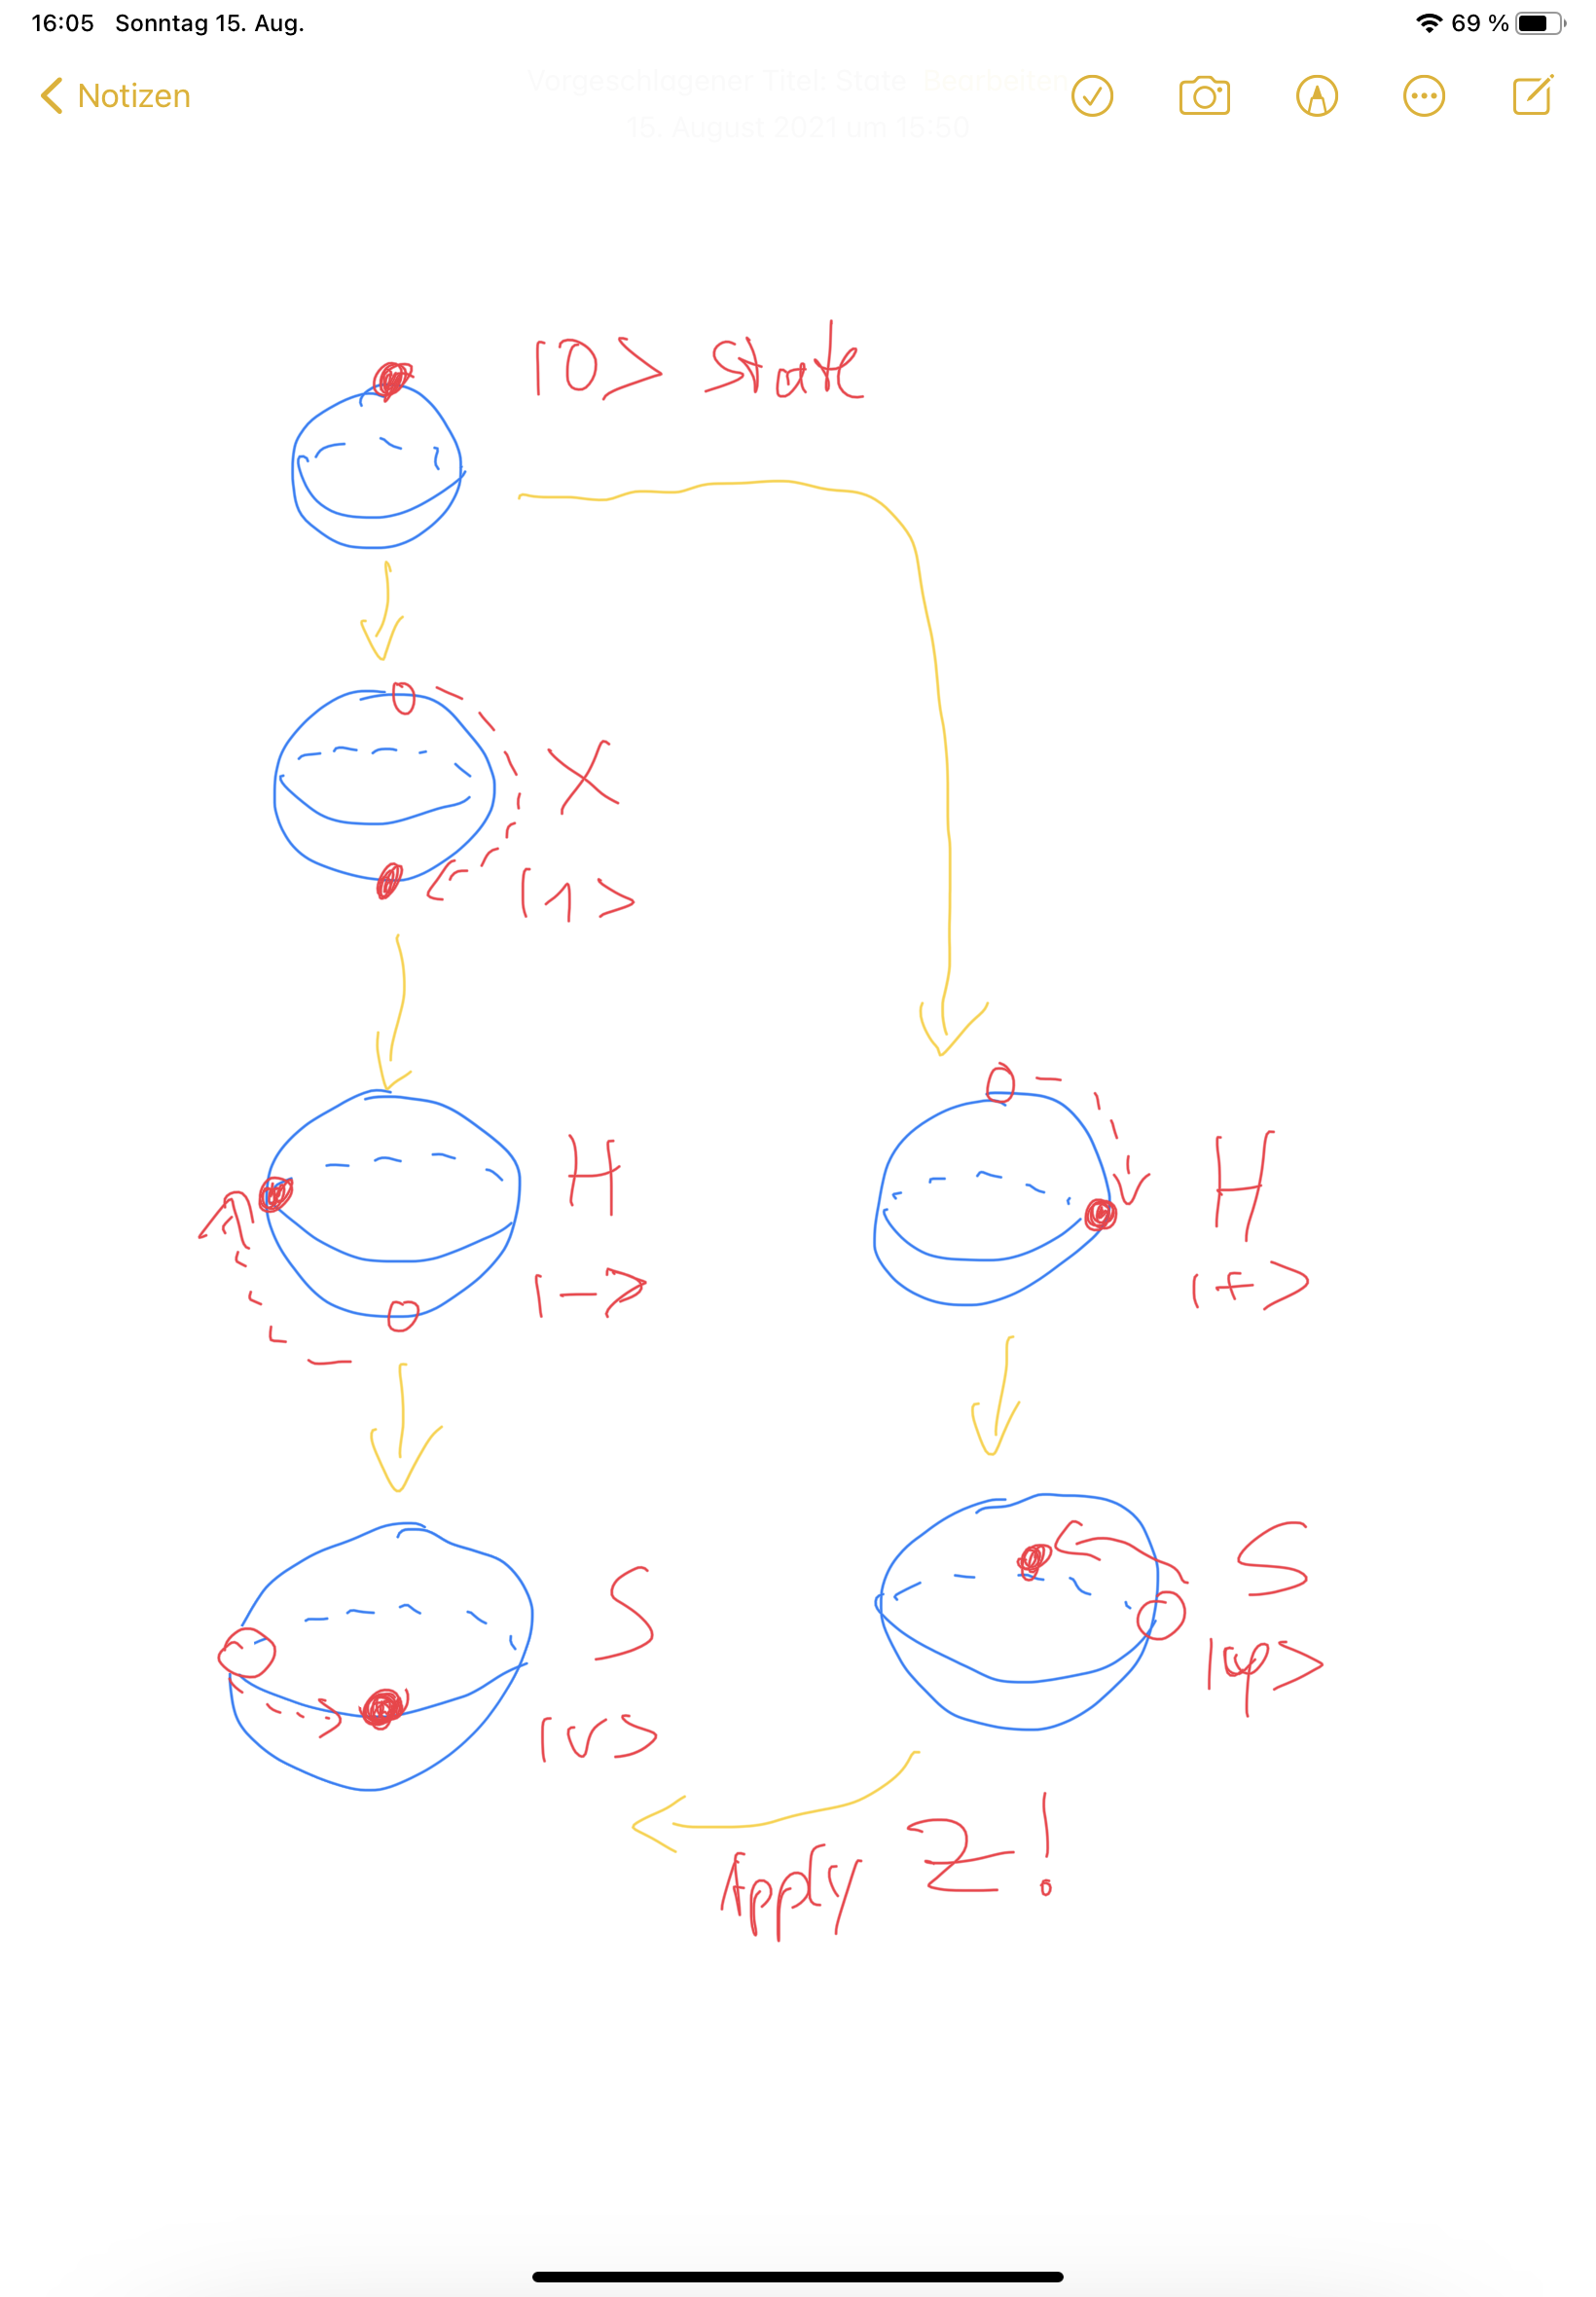 16:05 Sonntag 15. Aug. 69 %
Notizen
Vorgeschlagener Titel: State Bearbeiten
15. August 2021 um 15:50
|0> State
X
|1>
H
|->
H
|+>
S
|v>
S
|φ>
Apply Z!